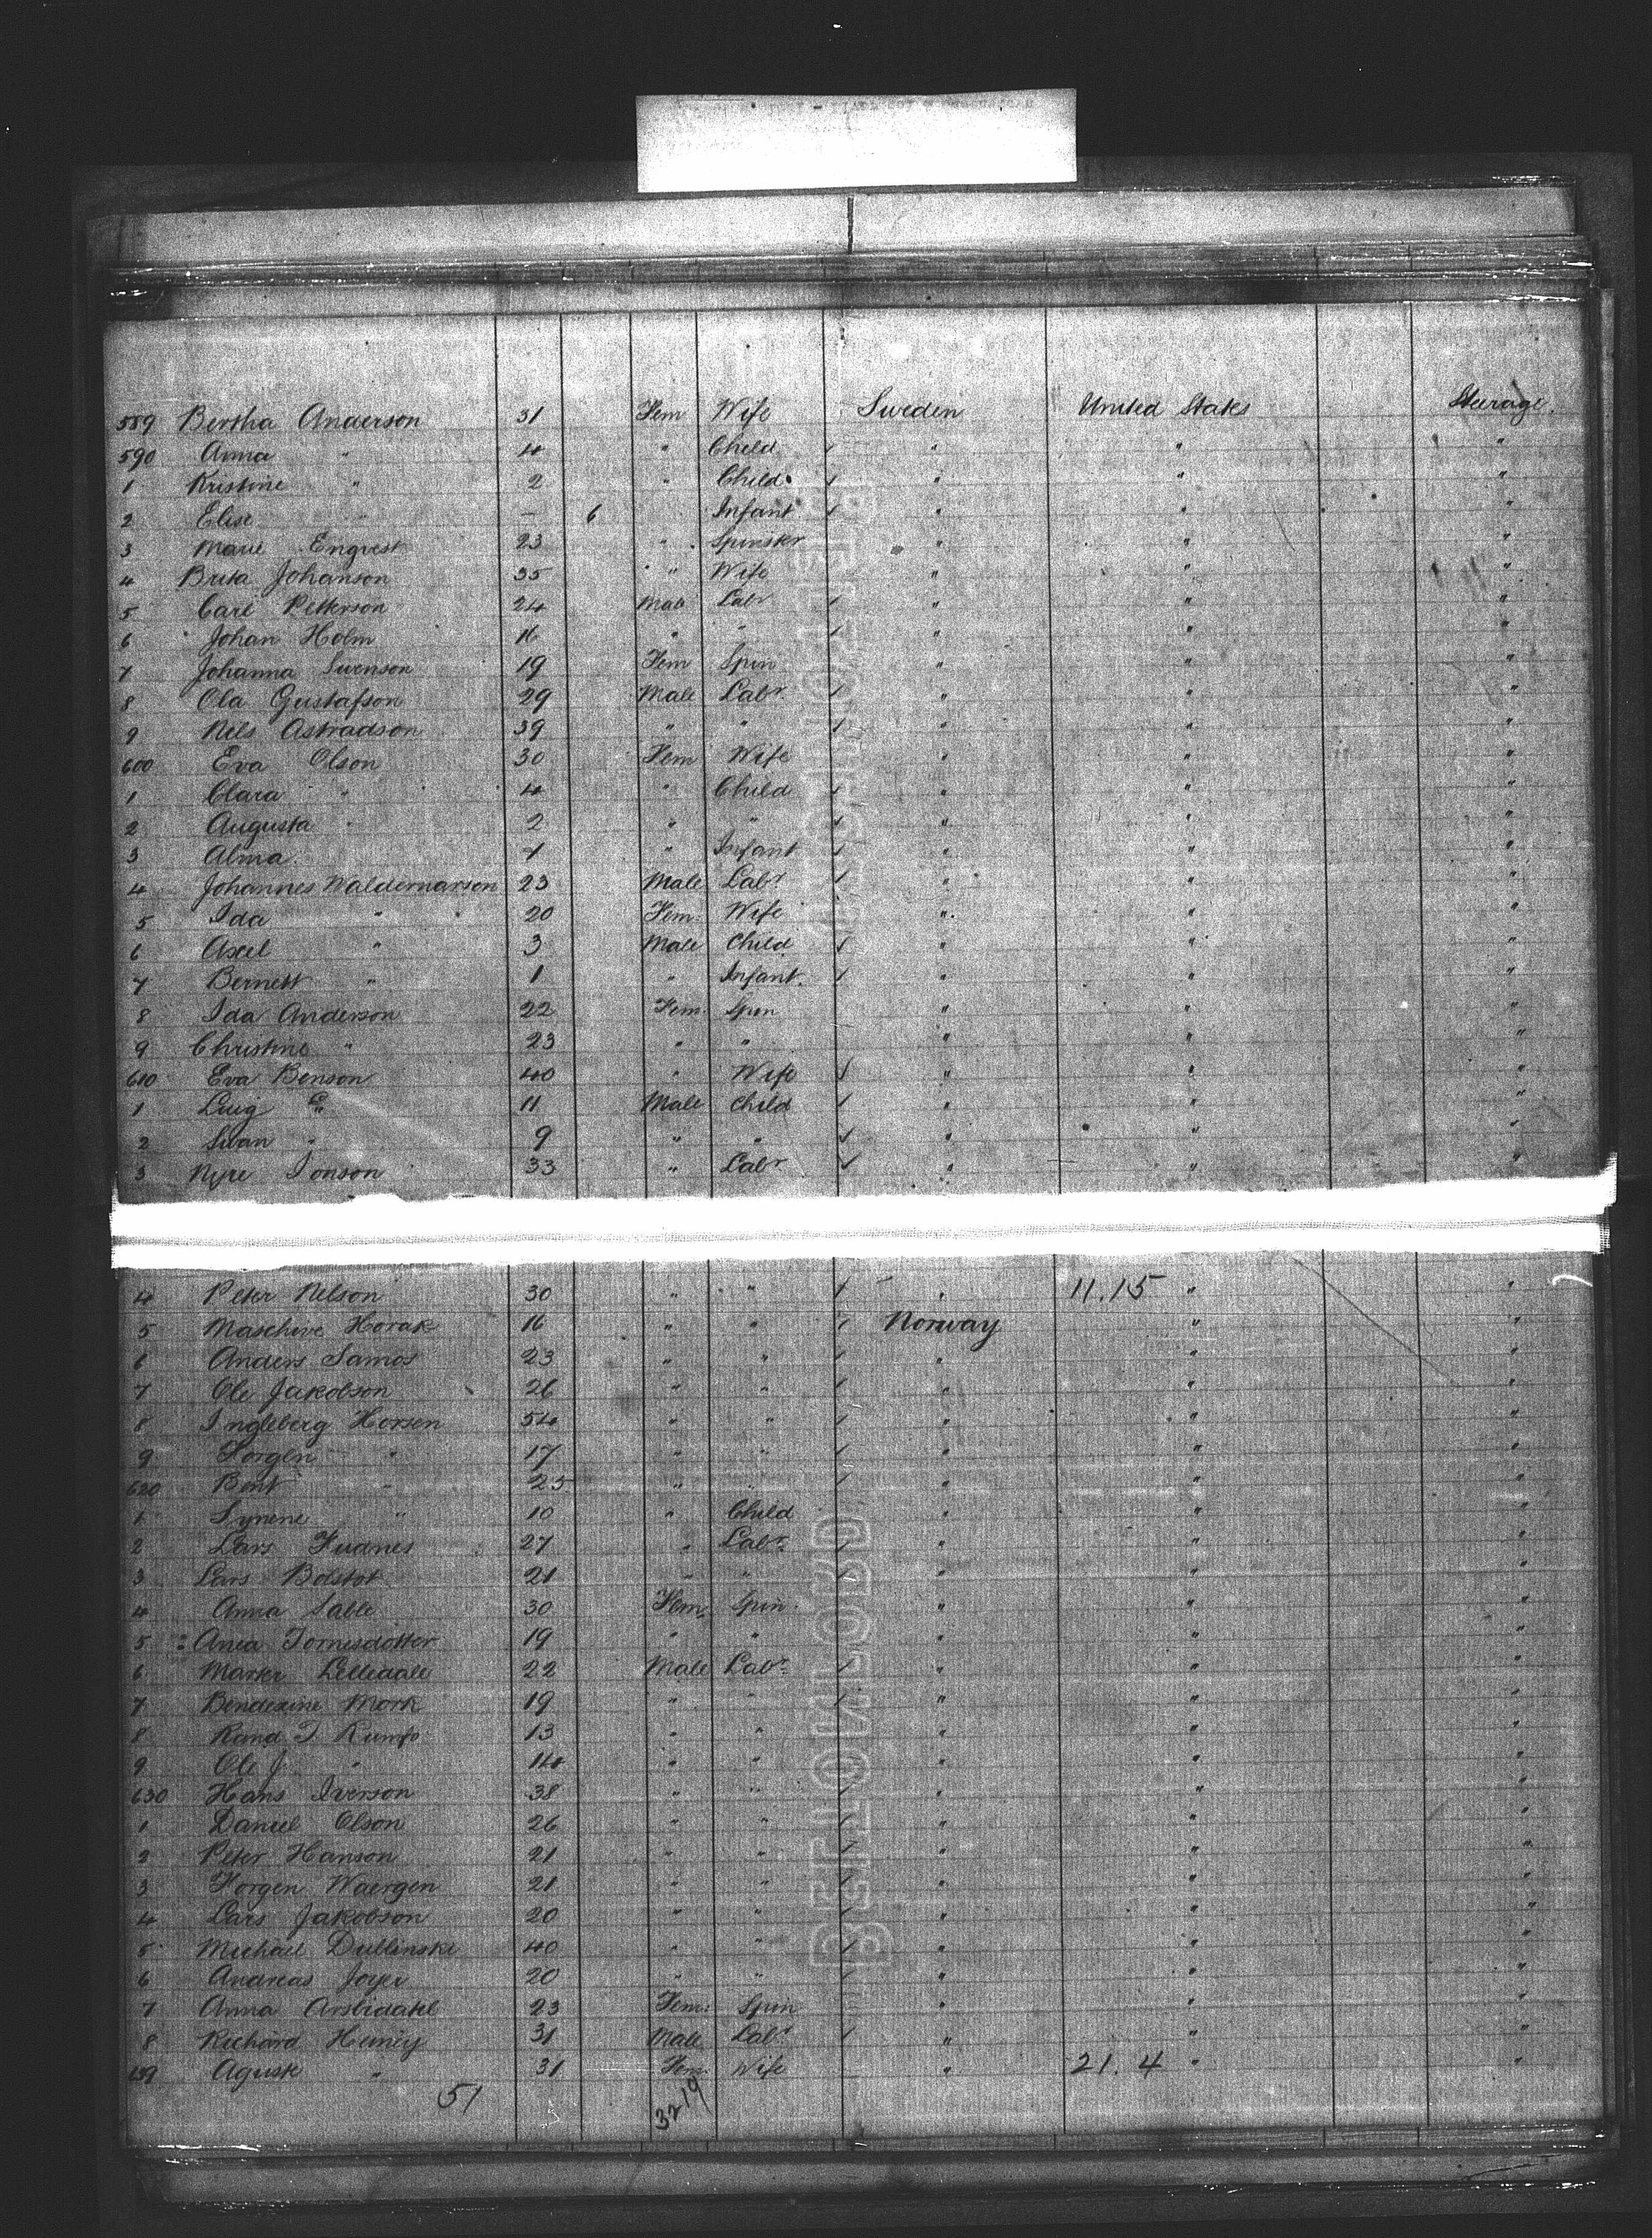 589 Bertha Anderson 31 Fem Wife Sweden United States Steerage.
590 Anna " 4 " Child " " "
1 Kristine " 2 " Child " " "
2 Elise " — 6 Infant " " "
3 Marie Engvest 23 " Spinster " " "
4 Brita Johanson 35 " Wife " " "
5 Carl Petterson 24 Male Labr " " "
6 Johan Holm 16 " " " " "
7 Johanna Swenson 19 Fem Spin " " "
8 Ola Gustafson 29 Male Labr " " "
9 Nils Astradson 39 " " " " "
600 Eva Olson 30 Fem Wife " " "
1 Clara " 4 " Child " " "
2 Augusta " 2 " " " " "
3 Alma 1 " Infant " " "
4 Johannes Waldemarson 23 Male Labr " " "
5 Ida " 20 Fem. Wife " " "
6 Axel " 3 Male Child " " "
7 Bernett " 1 " Infant. " " "
8 Ida Anderson 22 Fem. Spin " " "
9 Christine " 23 " " " " "
610 Eva Benson 40 " Wife " " "
1 Luig " 11 Male Child " " "
2 Swan " 9 " " " " "
3 Nyre Jonson 33 " Labr " " "
4 Peter Nelson 30 " " " 11.15 " "
5 Horak 16 " " Norway " "
6 Anders Samos 23 " " " " "
7 Ole Jakobson 26 " " " " "
8 Ingleberg Horsen 54 " " " " "
9 Torgen " 17 " " " " "
620 Bent " 25 " " " " "
1 Synene " 10 " Child " " "
2 Lars Fudnes 27 " Labr. " " "
3 Lars Bolstot 21 " " " " "
4 Anna Sable 30 Fem. Spin. " " "
5 Anea Tornesdotter 19 " " " " "
6 Lilledale 22 Male Labr. " " "
7 Bendexine Mork 19 " " " " "
8 Rand T 13 " " " " "
9 Ole J. " 14 " " " " "
630 Hans Iverson 38 " " " " "
1 Daniel Olson 26 " " " " "
2 Peter Hanson 21 " " " " "
3 Horgen Waergen 21 " " " " "
4 Lars Jakobson 20 " " " " "
5 Michael Dullinski 40 " " " " "
6 Andreas Joyer 20 " " " " "
7 Anna Arsbidahl 23 Fem: Spin " " "
8 Richard 31 Male Labr " " "
639 Agust " 31 Fem. Wife " 21.4 " "
51 3219